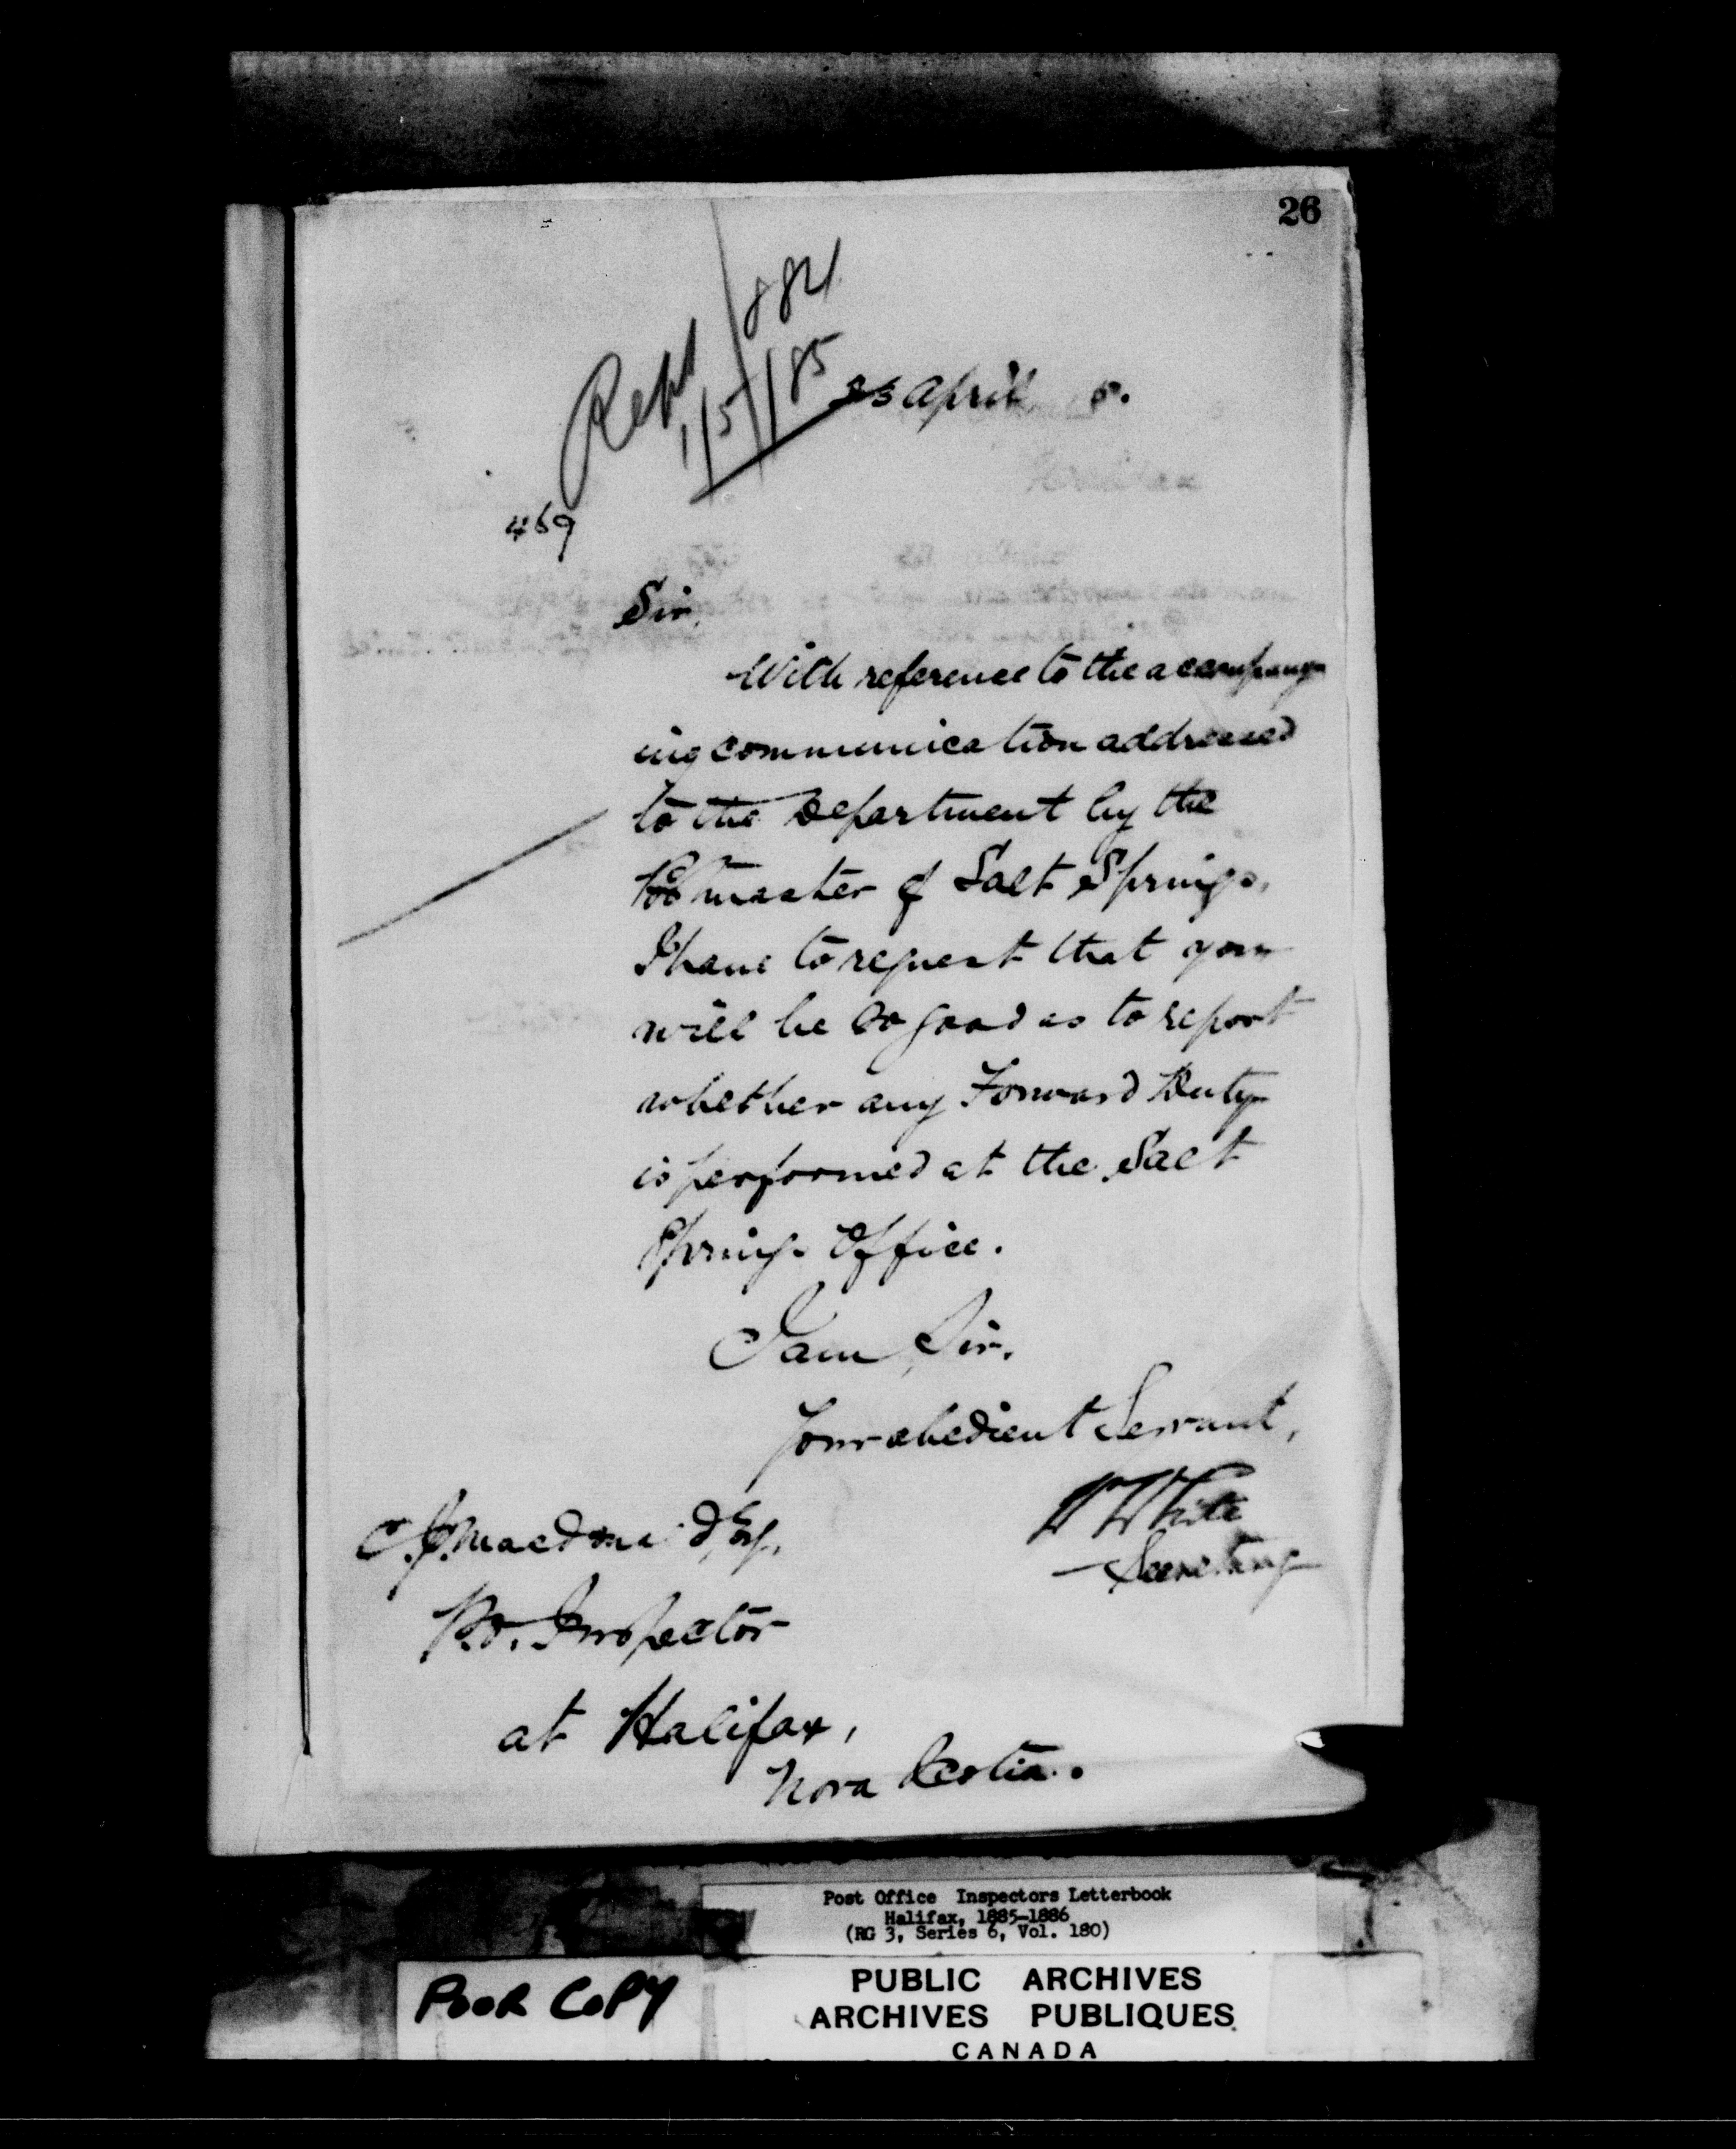 26
Repd 882
1/5/85
23 April 5.
469
Sir,
With reference to the accompany
ing communication addressed
to the Department by the
Postmaster of Salt Springs,
I have to request that you
will be so good as to report
whether any Forward Duty
is performed at the Salt
Springs Office.
I am, Sir,
Your obedient Servant,
W White
Secretary
C.J. Macdonald, Esq.
P.O. Inspector
at Halifax,
Nova Scotia.
Post Office Inspectors Letterbook
Halifax, 1885-1886
(RG 3, Series 6, Vol. 180)
POOR COPY
PUBLIC ARCHIVES
ARCHIVES PUBLIQUES
CANADA